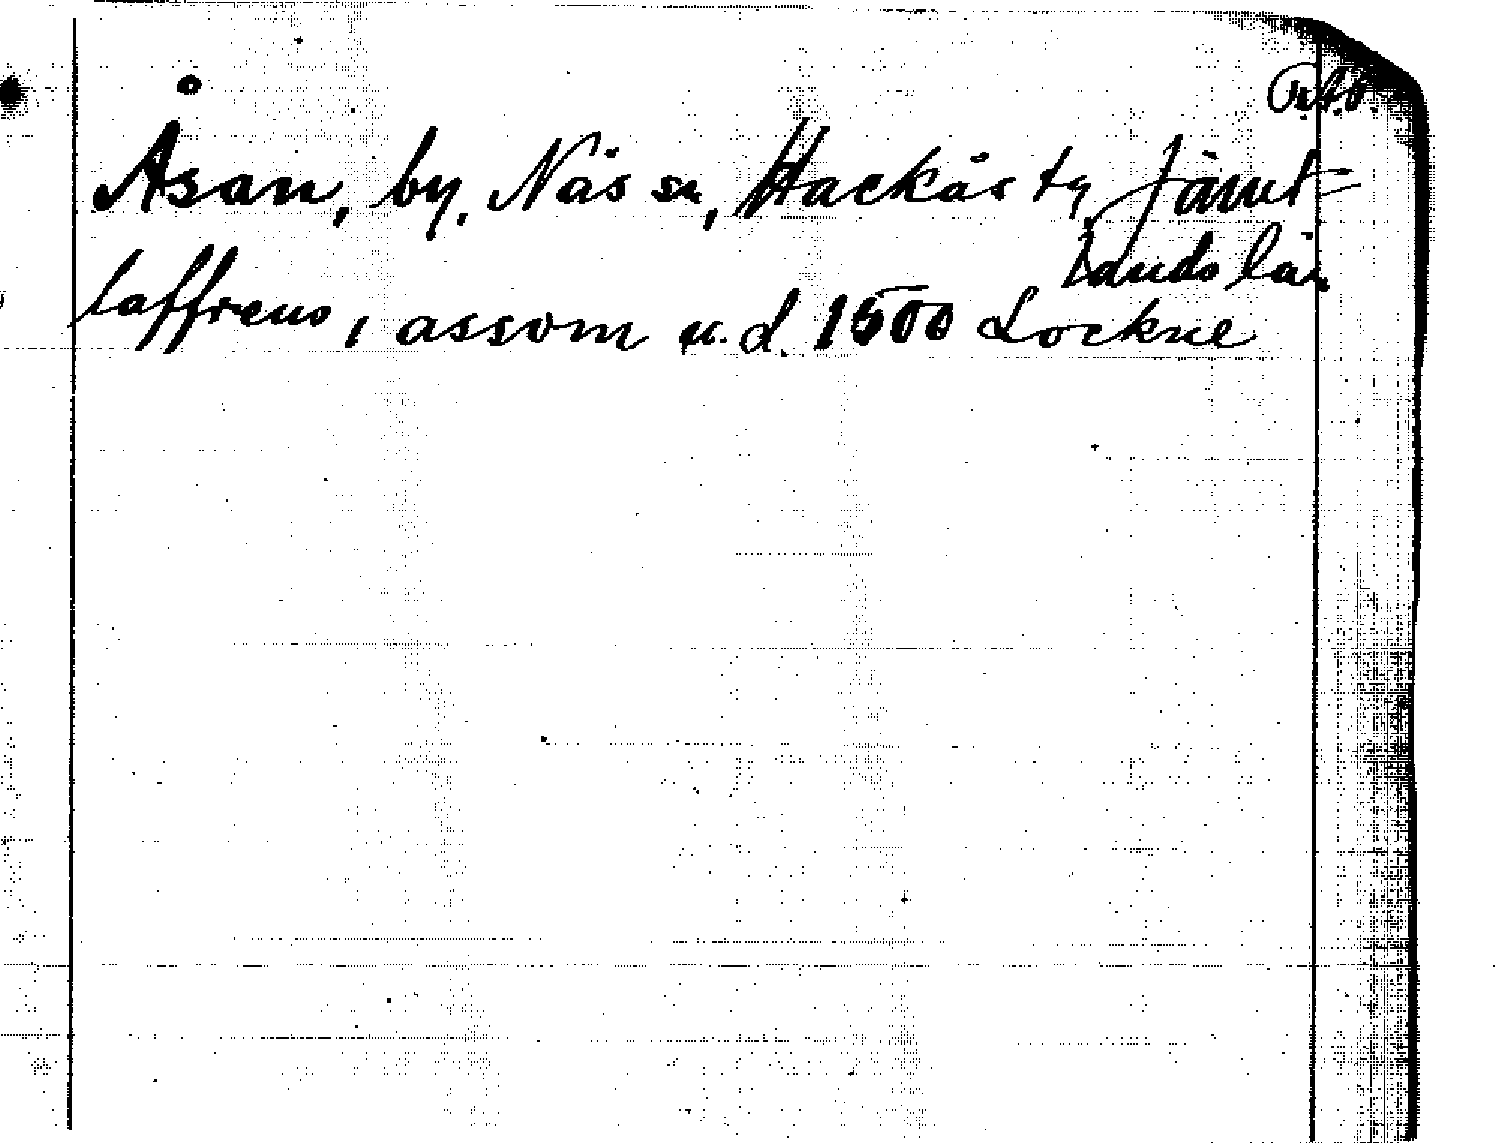 Åsan, by, Näs sn, Hackås tg Jämt-
lands län
laffrens, i assom u.d. 1500 Lockne